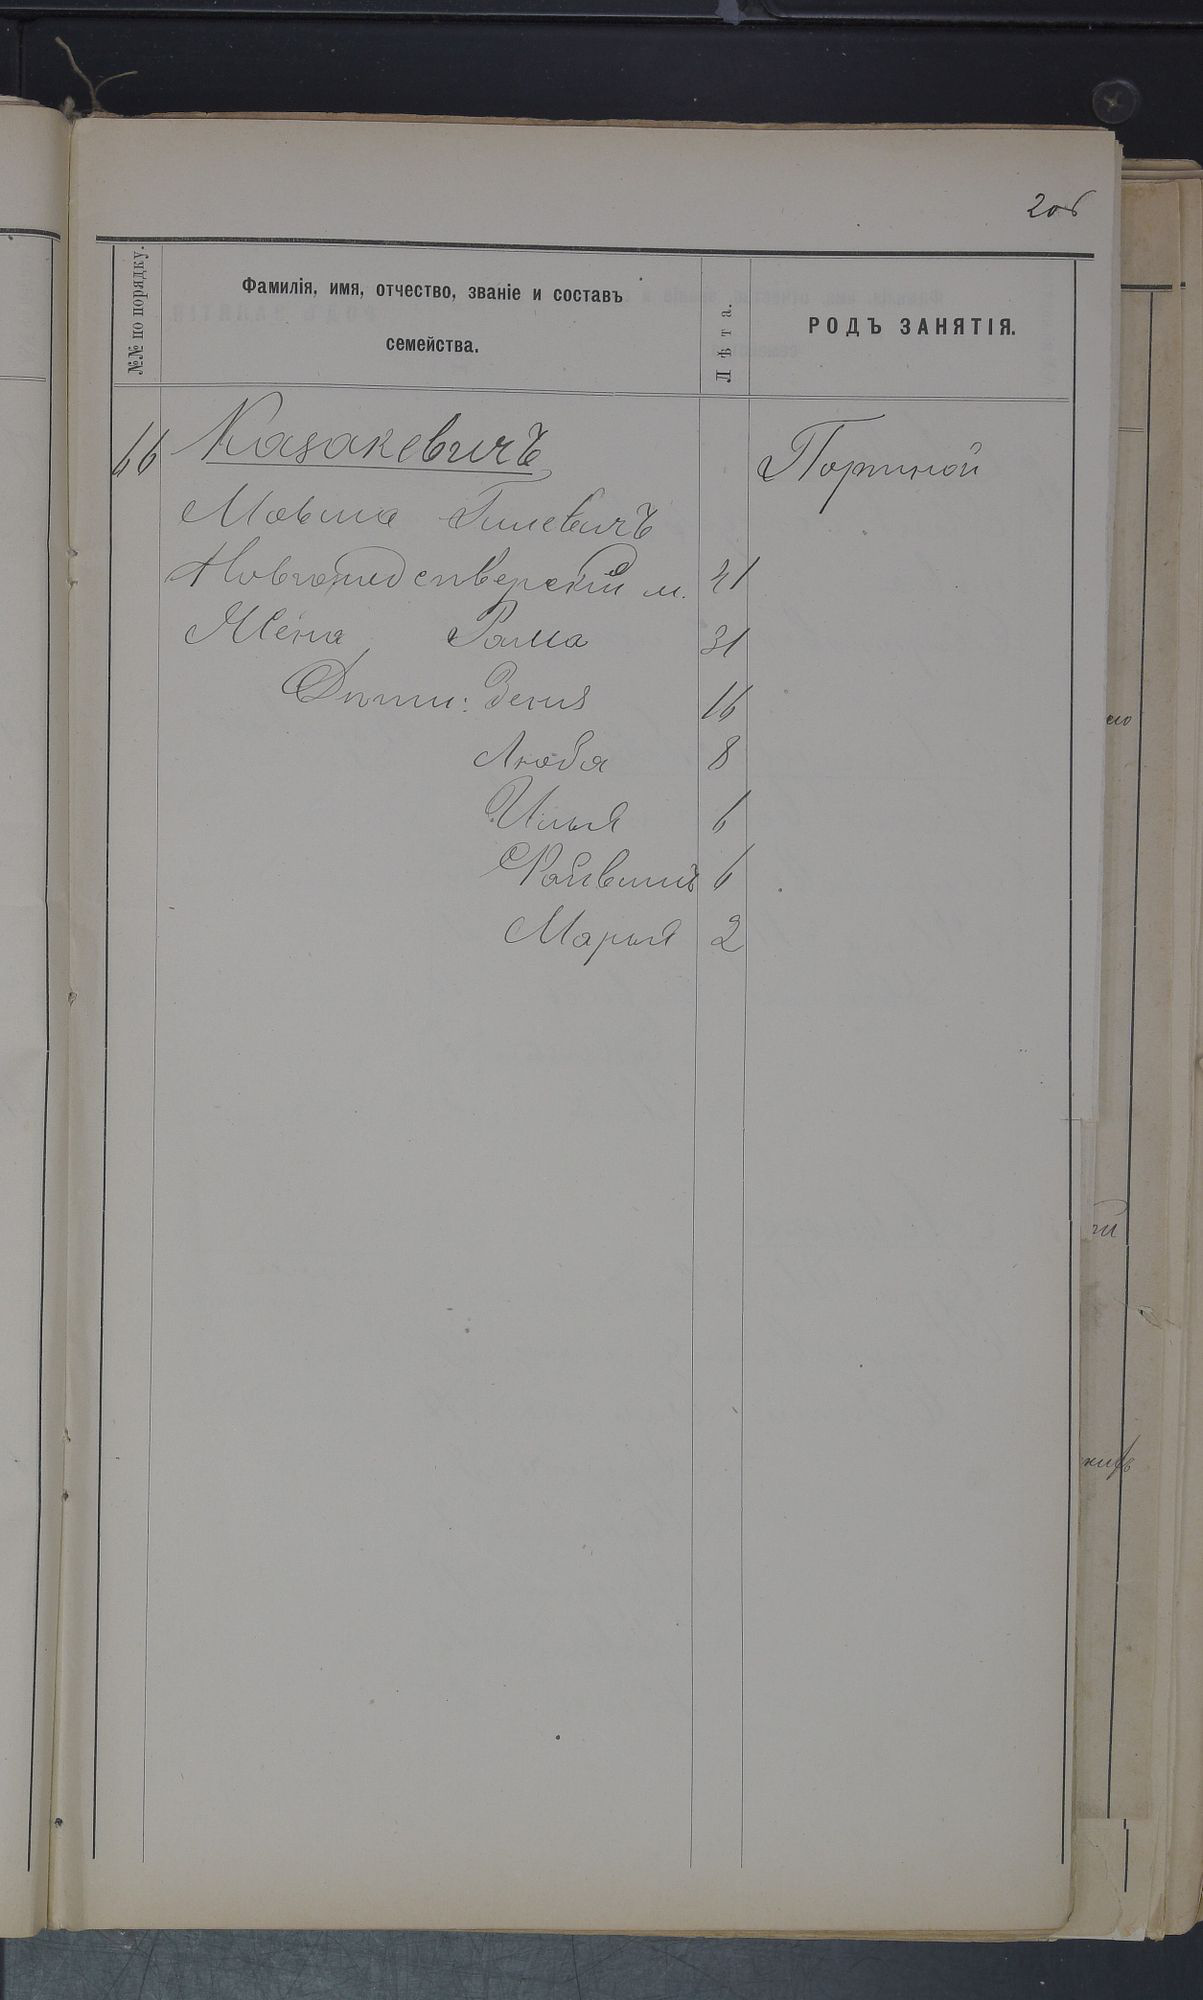 206
№№ по порядку.
Фамилія, имя, отчество, званіе и составъ
семейства.
Лѣта.
РОДЪ ЗАНЯТІЯ.
66 Казакевичъ Портной
Мовша Гилевичъ
Новгородсѣверскій м. 41
Жена Рама 31
Дѣти: Зеня 16
Люба 8
Илья 6
6
Марья 2